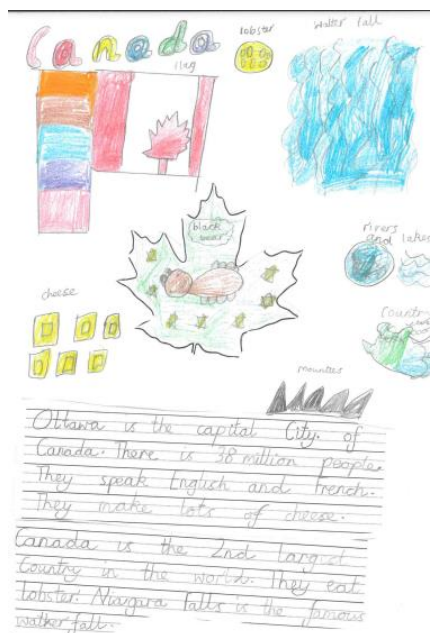 Canada
lobster
walter fall
flag
black
bear
rivers
and lakes
cheese
country
mounties
Ottawa is the capital City of
Canada. There is 38 million people.
They speak English and French.
They make lots of cheese.
Canada is the 2nd largest
Country in the world. They eat
lobster. Niagara Falls is the famous
walter fall.